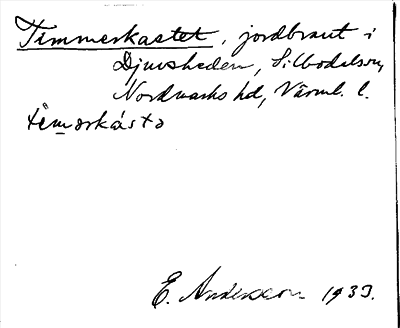 Timmerkastet, jordbrant i
Djuvsheden, Silbodalssn,
Nordmarks hd, Värml. l.
timərkástə
E. Andersson 1933.